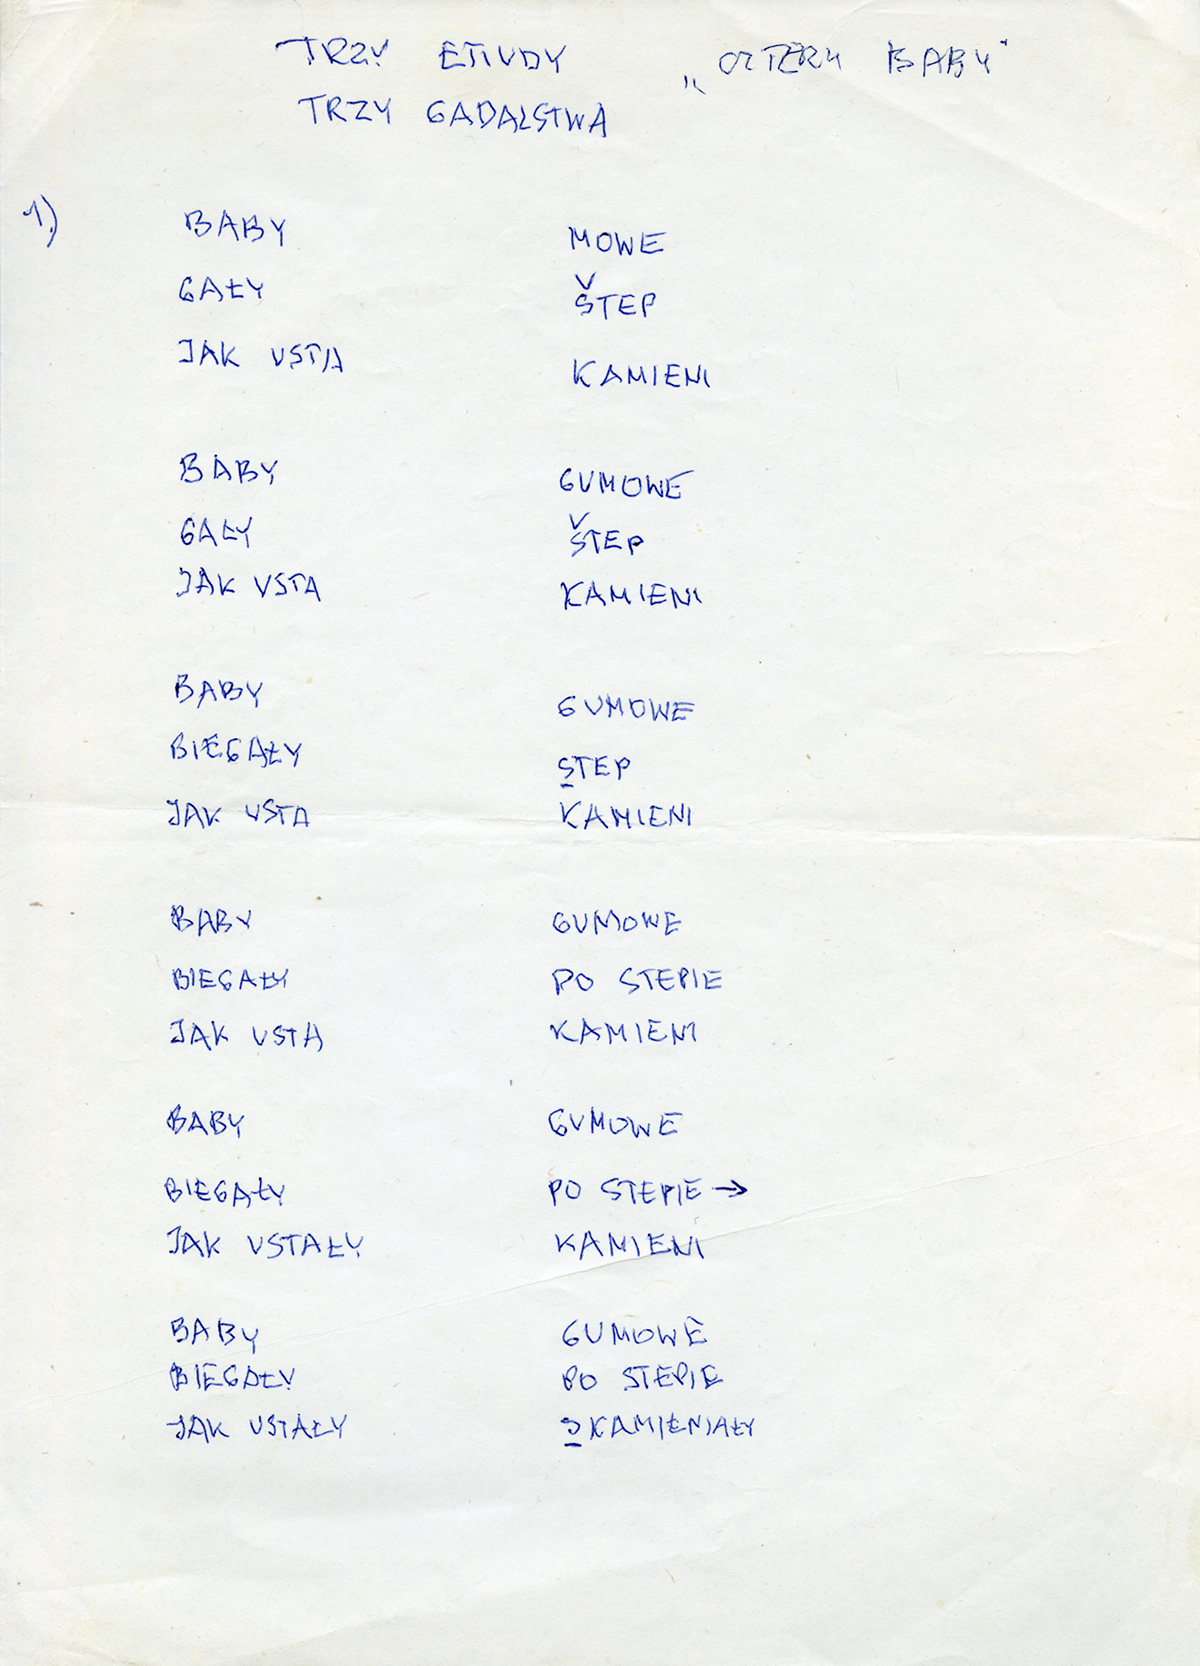 TRZY ETIUDY „CZTERY BABY"
TRZY GADALSTWA
1)
BABY MOWE
GAŁY ŠTEP
JAK USTA KAMIENI
BABY GUMOWE
GAŁY ŠTEP
JAK USTA KAMIENI
BABY GUMOWE
BIEGAŁY STEP
JAK USTA KAMIENI
BABY GUMOWE
BIEGAŁY PO STEPIE
JAK USTA KAMIENI
BABY GUMOWE
BIEGAŁY PO STEPIE →
JAK USTAŁY KAMIENI
BABY GUMOWE
BIEGAŁY PO STEPIE
JAK USTAŁY SKAMIENIAŁY